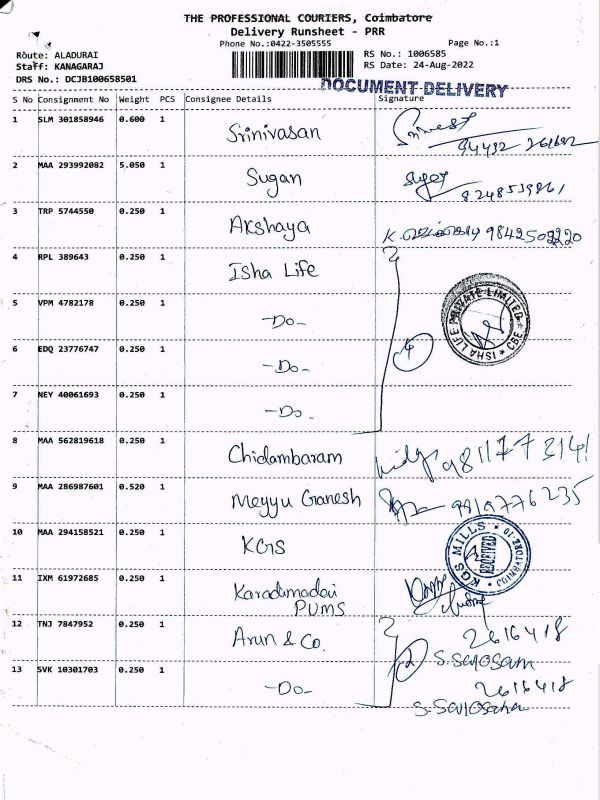 THE PROFESSIONAL COURIERS, Coimbatore
Delivery Runsheet - PRR
Phone No.:0422-3505555 Page No.:1
Route: ALADURAI RS No.: 1006585
Staff: KANAGARAJ RS Date: 24-Aug-2022
DRS No.: DCJB100658501
DOCUMENT DELIVERY
S No Consignment No Weight PCS Consignee Details Signature
1 SLM 301858946 0.600 1 Srinivasan
94432 261682
2 MAA 293992082 5.050 1 Sugan
8248539861
3 TRP 5744550 0.250 1 Akshaya 9842502220
4 RPL 389643 0.250 1 Isha Life
5 VPM 4782178 0.250 1 -Do-
ISHA LIFE PRIVATE LIMITED * CBE *
6 EDQ 23776747 0.250 1 -Do- 4
7 NEY 40061693 0.250 1 -Do-
8 MAA 562819618 0.250 1 Chidambaram
9 MAA 286987601 0.520 1 Meyyu Ganesh 9919776235
10 MAA 294158521 0.250 1 KGS
KGS MILLS * COIMBATORE-10 *
RECEIVED
11 IXM 61972685 0.250 1 Karadimadai
PUMS
12 TNJ 7847952 0.250 1 Arun & Co. 2616418
2 S. Sarosam
13 SVK 10301703 0.250 1 -Do- 2616418